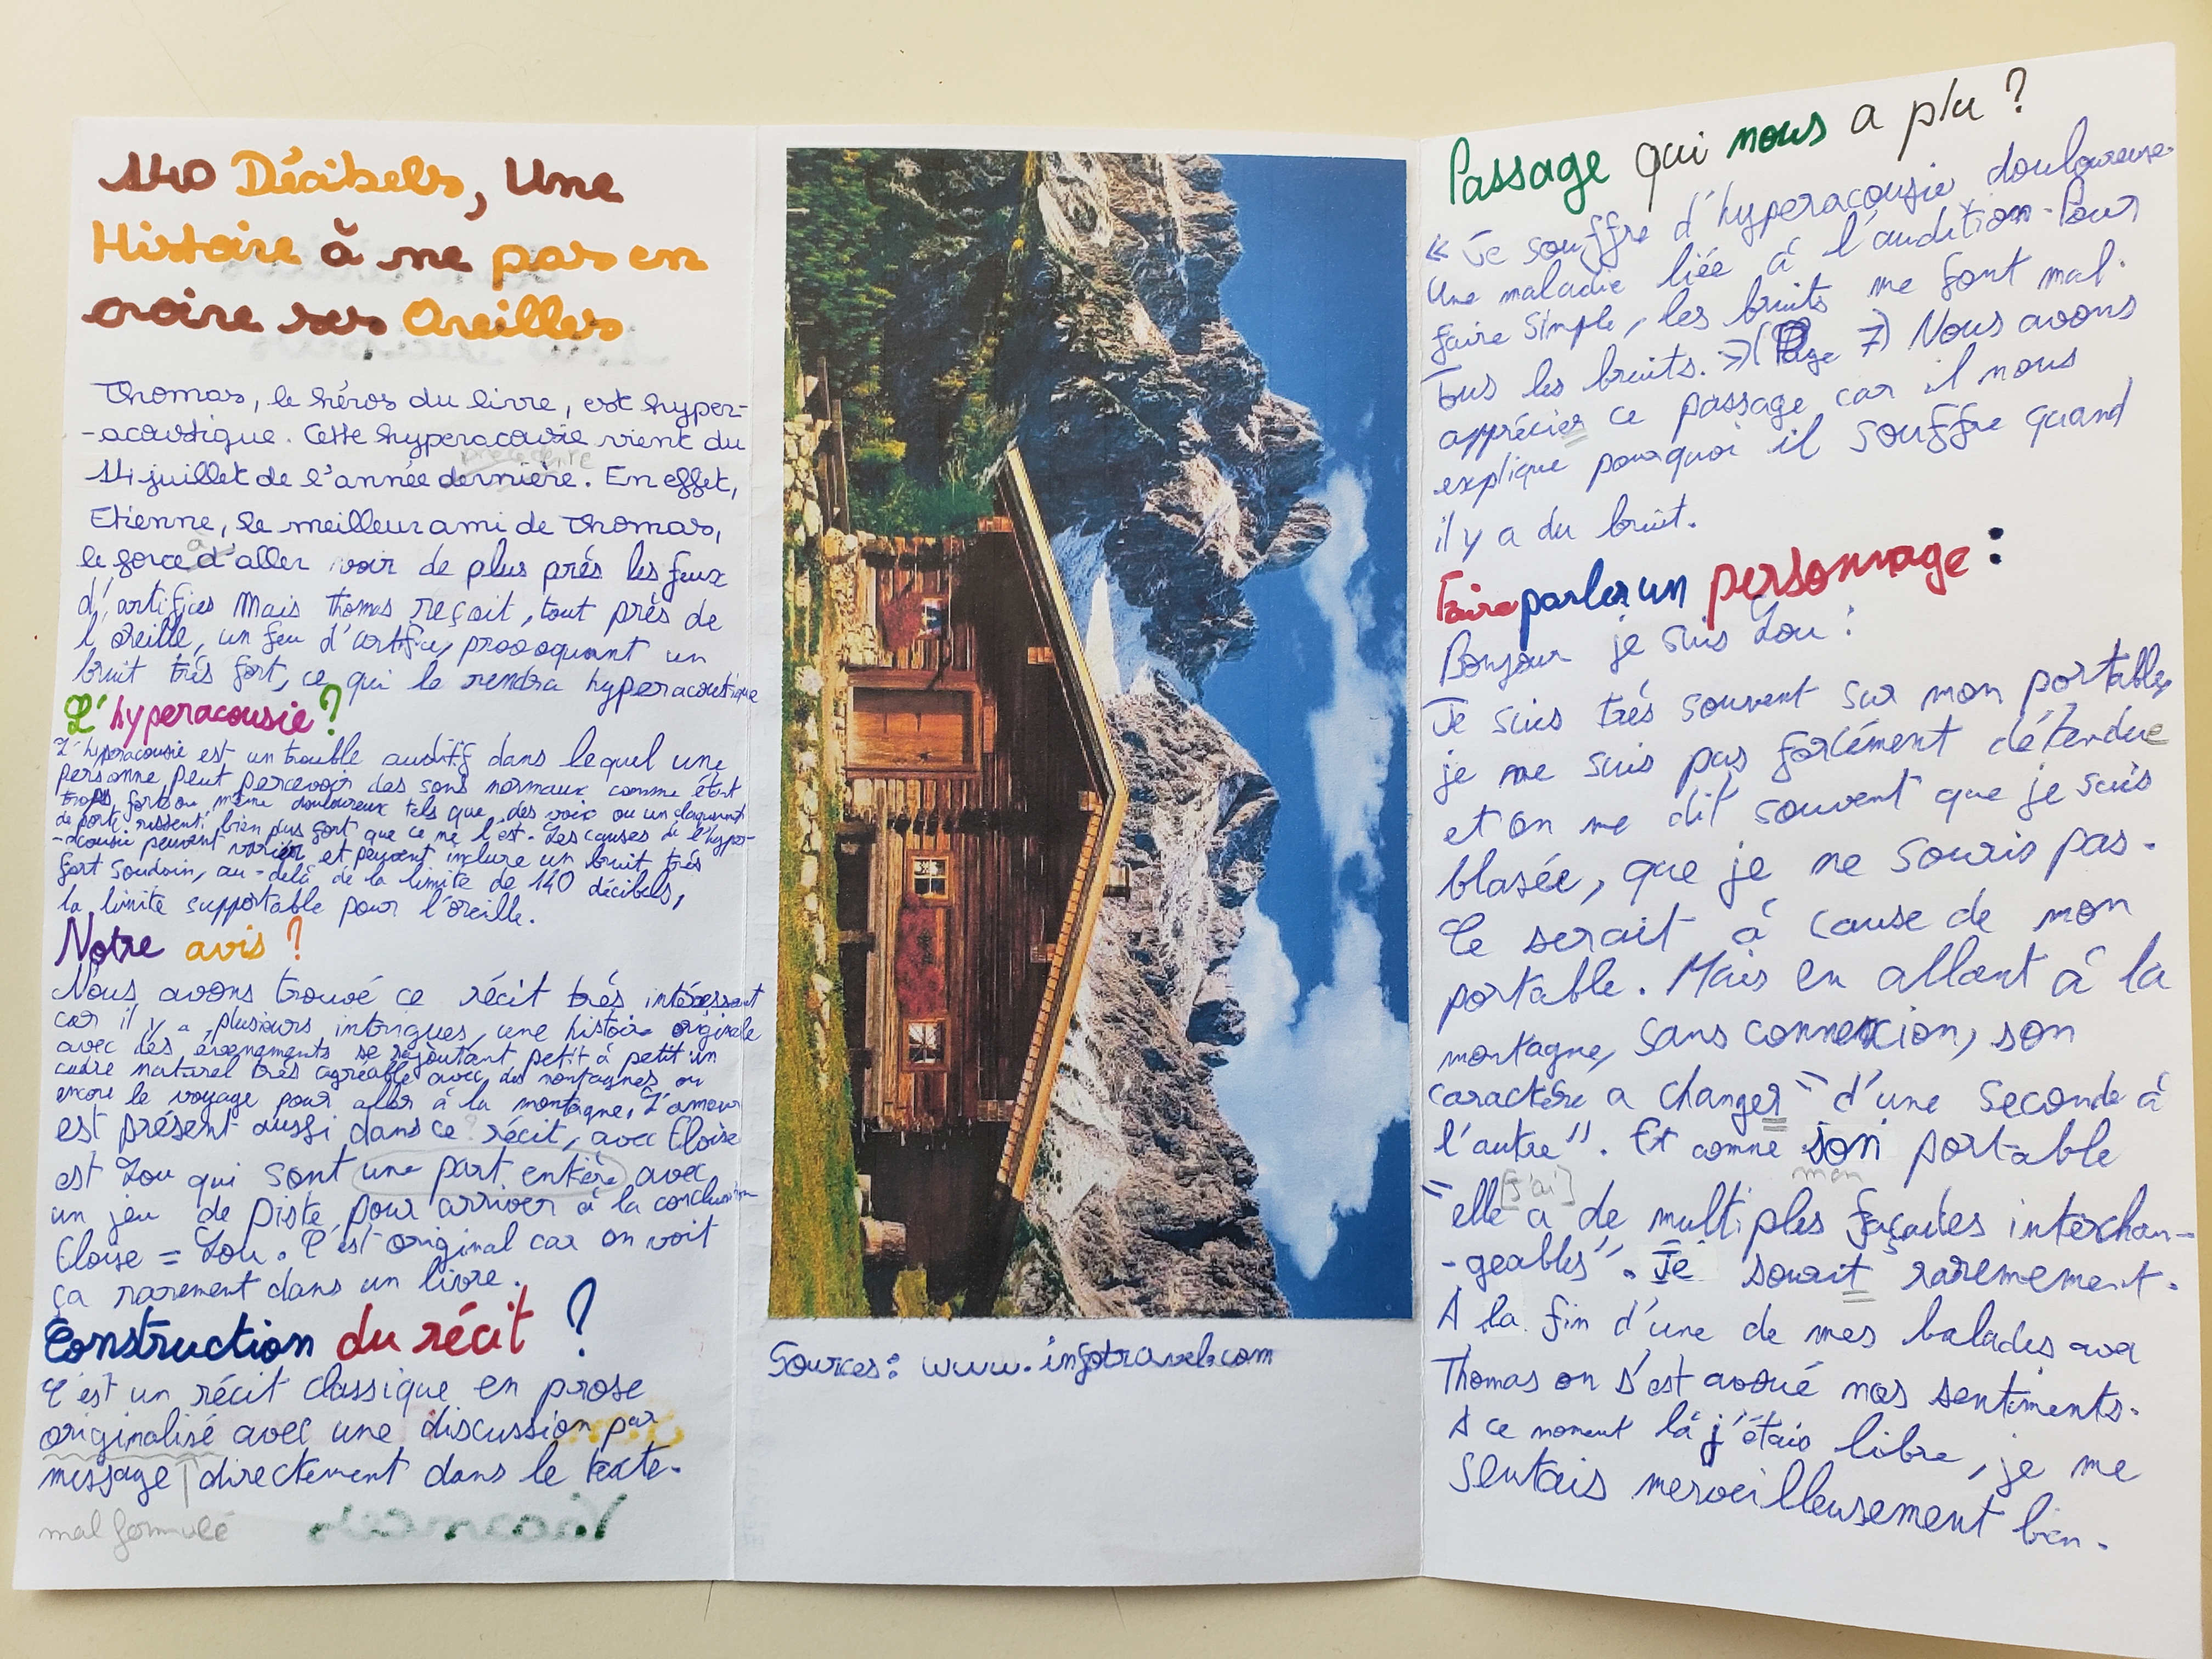 140 Décibels, Une
Histoire à ne pas en
croire ses Oreilles
Thomas, le héros du livre, est hyper-
-acoustique. Cette hyperacousie vient du
précédente
14 juillet de l'année dernière. En effet,
Etienne, le meilleur ami de Thomas,
à
le force d'aller voir de plus prés les feux
d'artifices mais Thomas reçoit, tout près de
l'oreille, un feu d'artifice, provoquant un
bruit trés fort, ce qui le rendra hyperacoustique
L'hyperacousie?
L'hyperacousie est un trouble auditif dans lequel une
personne peut percevoir des sons normaux comme étant
trops forts ou même douloureux tels que des voix ou un claquement
de porte: ressenti bien plus fort que ce ne l'est. Les causes de l'hyper-
-acousie peuvent varier et peuvent inclure un bruit trés
fort soudain, au-delà de la limite de 140 décibels,
la limite supportable pour l'oreille.
Notre avis?
Nous avons trouvé ce récit trés intéressant
car il y a plusieurs intrigues, une histoire originale
avec des évenements se rajoutant petit à petit un
cadre naturel trés agréable avec des montagnes ou
encore le voyage pour aller à la montagne, L'amour
est présent aussi dans ce récit, avec Eloise
est Lou qui sont une part entère avec
un jeu de piste pour arriver à la conclusion
Eloise = Lou. C'est original car on voit
ça rarement dans un livre.
Construction du récit?
C'est un récit classique en prose
originalisé avec une discussion par
message directement dans le texte.
mal formulé
Vacances
Sources: www.infotravel.com
Passage qui nous a plu?
« Je souffre d'hyperacousie douloureuse.
Une maladie liée à l'audition. Pour
faire simple, les bruits me font mal.
Tous les bruits. »(Page 7) Nous avons
appréciés ce passage car il nous
explique pourquoi il souffre quand
il y a du bruit.
Faire parler un personnage:
Bonjour je suis Lou:
Je suis trés souvent sur mon portable,
je ne suis pas forcément détendue
et on me dit souvent que je suis
blasée, que je ne souris pas.
Ce serait à cause de mon
portable. Mais en allant à la
montagne, sans connexion, son
caractère a changer "d'une seconde à
l'autre". Et comme son portable
mon
[j'ai]
"elle a de multiples façades interchan-
-geables". Je sourit raremement.
A la fin d'une de mes balades avec
Thomas on s'est avoué nos sentiments.
A ce moment là j'étais libre, je me
sentais merveilleusement bien.